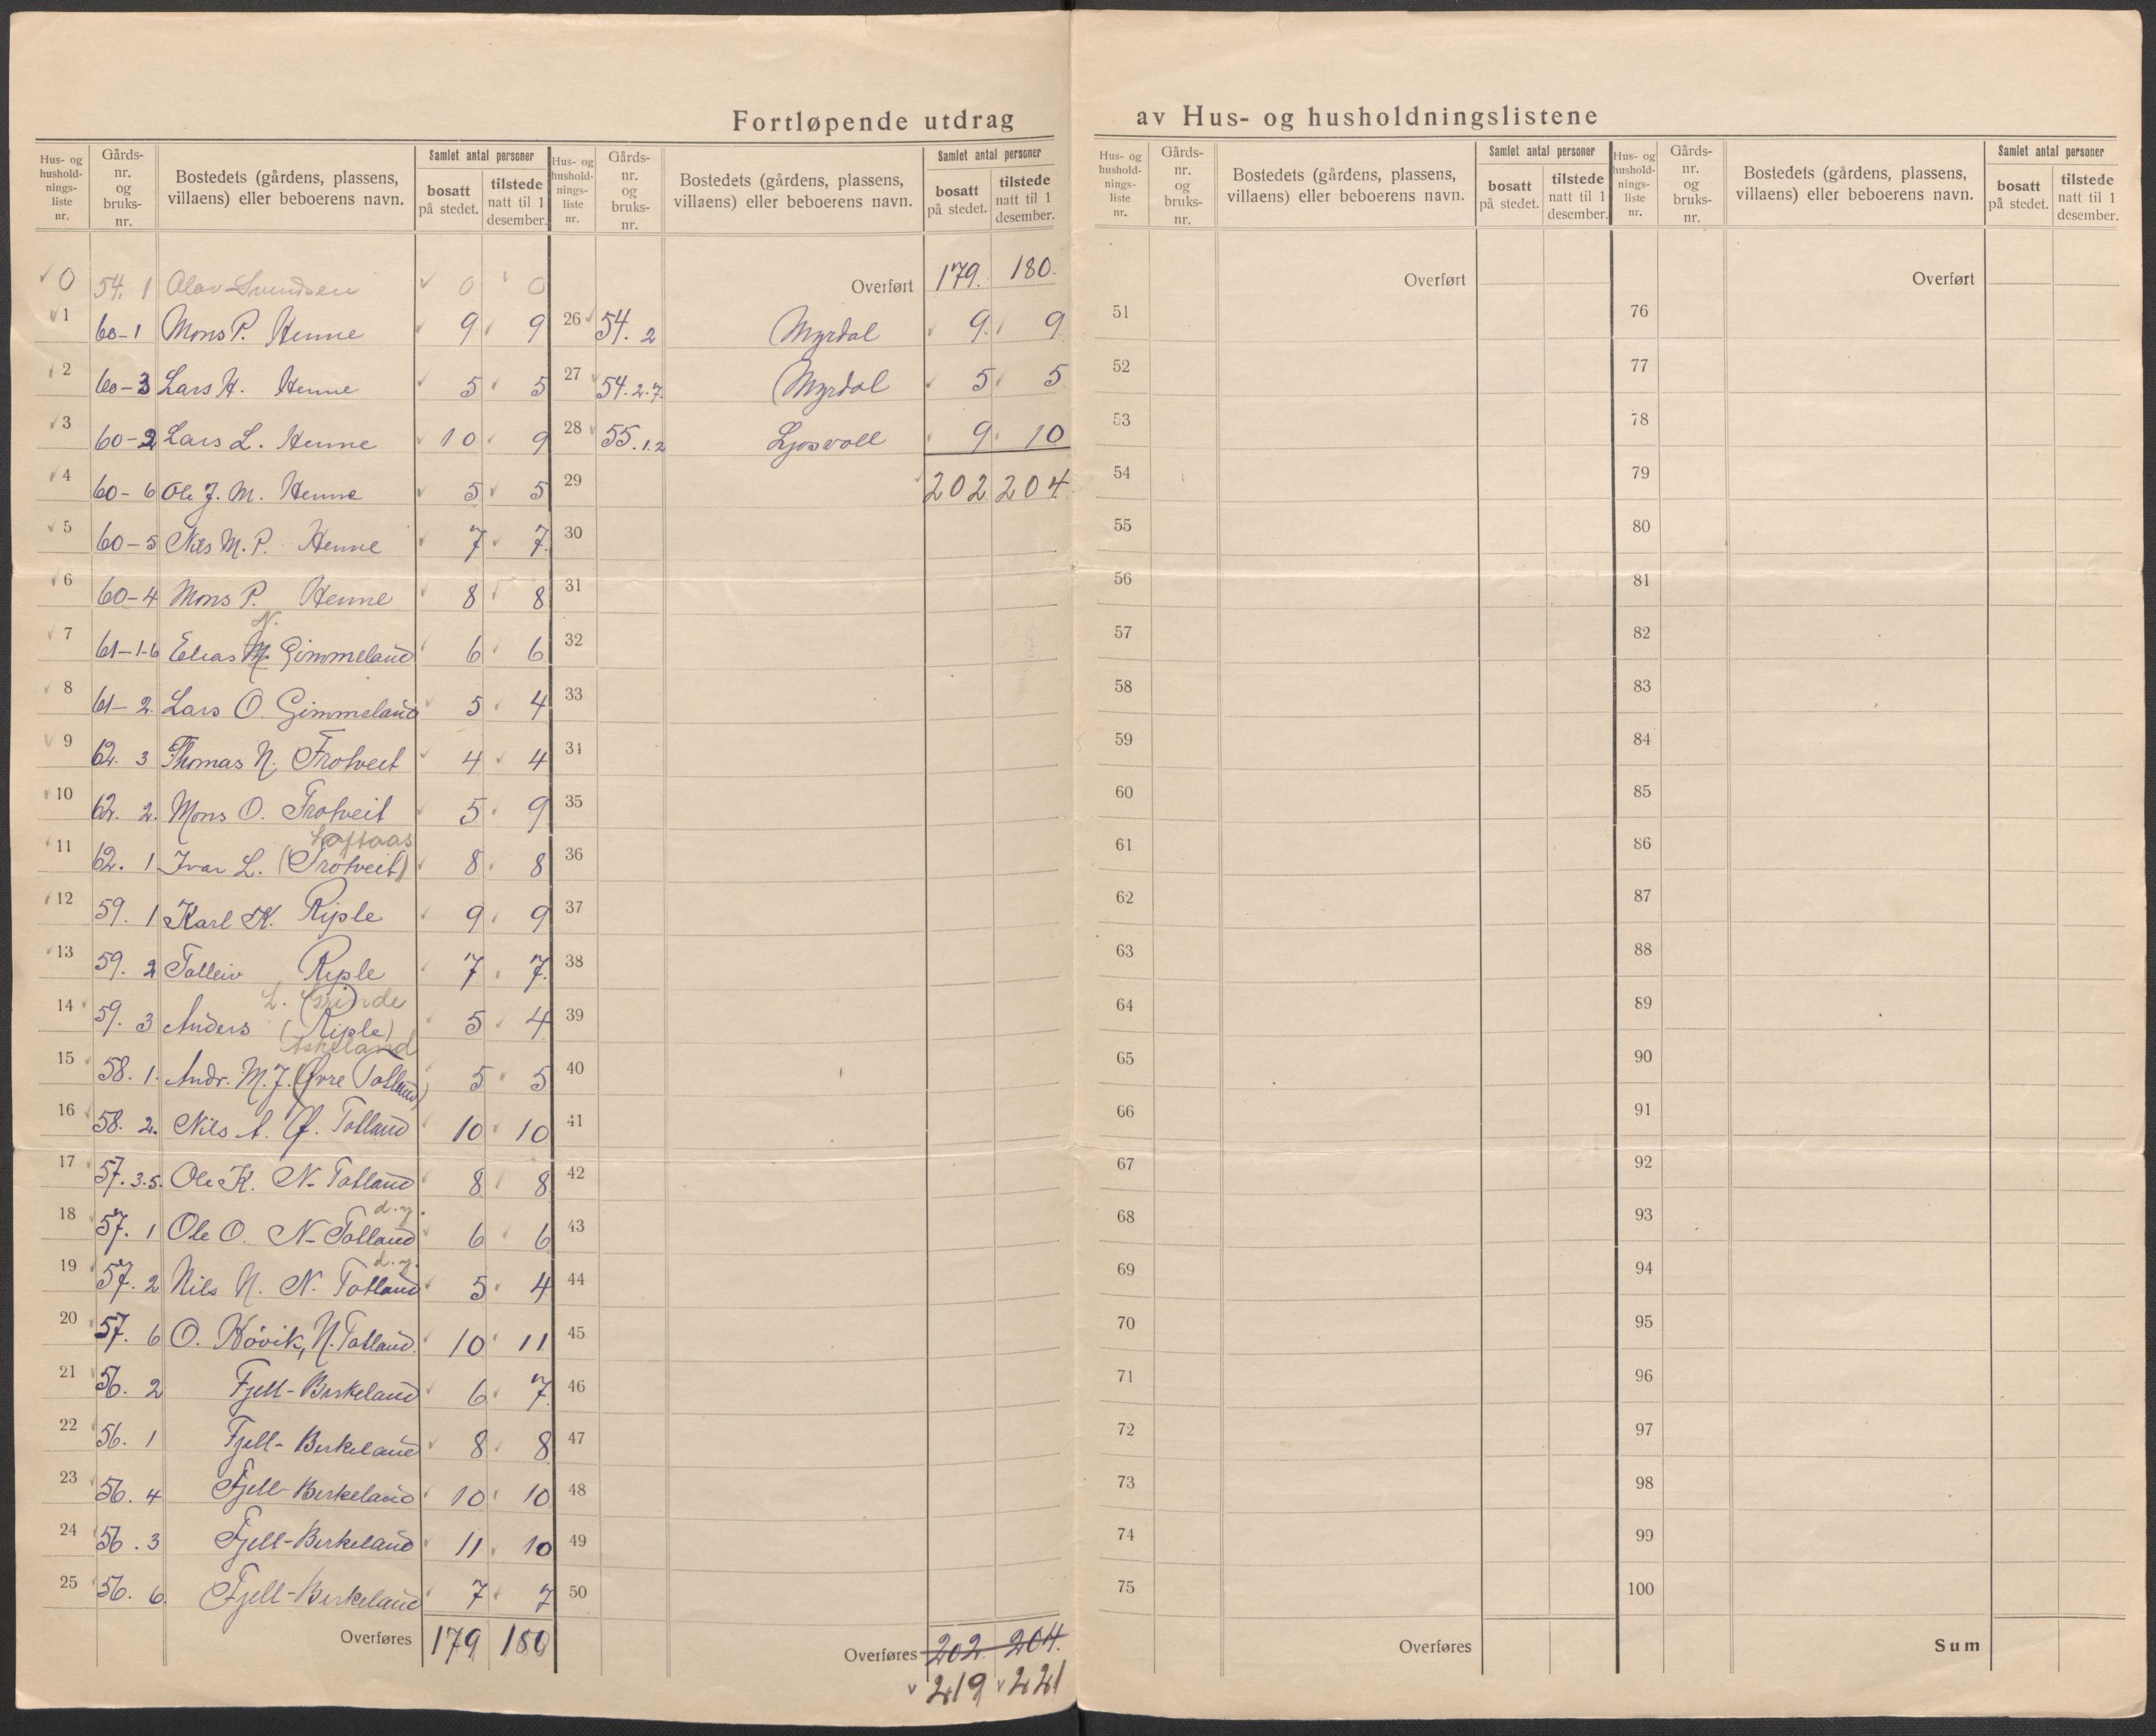 Fortløpende utdrag av Hus- og husholdningslistene
Hus- og husholdnings-liste nr. Gårds-nr. og bruks-nr. Bostedets (gårdens, plassens, villaens) eller beboerens navn. Samlet antal personer bosatt på stedet. tilstede natt til 1 desember.
0 54. 1 Olav Svendsen 0 0
1 60-1 Mons P. Henne 9 9
2 60-3 Lars H. Henne 5 5
3 60-2 Lars L. Henne 10 9
4 60-6 Ole J. M. Henne 5 5
5 60-5 Nils M. P. Henne 7 7
6 60-4 Mons P. Henne 8 8
N.
7 61-1-6 Elias M. Gimmeland 6 6
8 61-2. Lars O. Gimmeland 5 4
9 62. 3 Thomas N. Trotveit 4 4
10 62. 2. Mons O. Trotveit 5 9
Loftaas
11 62. 1 Ivar L. (Trotveit) 8 8
12 59. 1 Karl K. Riple 9 9
13 59. 2 Tolleiv Riple 7 7
L. Grinde
14 59. 3 Anders (Riple) 5 4
Askeland
15 58. 1. Andr. M. J. (Øvre Totland) 5 5
16 58. 2. Nils A. Ø. Totland 10 10
17 57. 3.5. Ole K. N. Totland 8 8
d.y.
18 57. 1 Ole O. N. Totland 6 6
d.y.
19 57. 2 Nils N. N. Totland 5 4
20 57. 6 O. Høvik, N. Totland 10 11
21 56. 2 Fjell-Birkeland 6 7
22 56. 1 Fjell-Birkeland 8 8
23 56. 4 Fjell-Birkeland 10 10
24 56. 3 Fjell-Birkeland 11 10
25 56. 6. Fjell-Birkeland 7 7
Overføres 179 180
Hus- og husholdnings-liste nr. Gårds-nr. og bruks-nr. Bostedets (gårdens, plassens, villaens) eller beboerens navn. Samlet antal personer bosatt på stedet. tilstede natt til 1 desember.
Overført 179. 180.
26 54. 2 Myrdal 9 9
27 54. 2.7. Myrdal 5 5
28 55. 1.2 Ljosvoll 9 10
29 202 204
30
31
32
33
34
35
36
37
38
39
40
41
42
43
44
45
46
47
48
49
50
Overføres 202. 204.
219 221
Hus- og husholdnings-liste nr. Gårds-nr. og bruks-nr. Bostedets (gårdens, plassens, villaens) eller beboerens navn. Samlet antal personer bosatt på stedet. tilstede natt til 1 desember.
Overført
51
52
53
54
55
56
57
58
59
60
61
62
63
64
65
66
67
68
69
70
71
72
73
74
75
Overføres
Hus- og husholdnings-liste nr. Gårds-nr. og bruks-nr. Bostedets (gårdens, plassens, villaens) eller beboerens navn. Samlet antal personer bosatt på stedet. tilstede natt til 1 desember.
Overført
76
77
78
79
80
81
82
83
84
85
86
87
88
89
90
91
92
93
94
95
96
97
98
99
100
Sum